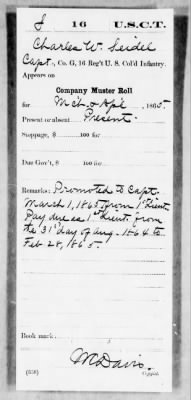 S 16 U.S.C.T.
Charles W. Seidel
Capt., Co. G, 16 Reg't U. S. Col'd Infantry.
Appears on
Company Muster Roll
for Mch & Apl, 1865
Present or absent Present
Stoppage, $ 100 for
Due Gov't, $ 100 for
Remarks: Promoted to Capt.
March 1, 1865 from 1" Lieut.
Pay due as 1" Lieut. from
the 31" day of Aug. 1864 to
Feb 28, 1865.
Book mark:
M Davis
(358) Copyist.